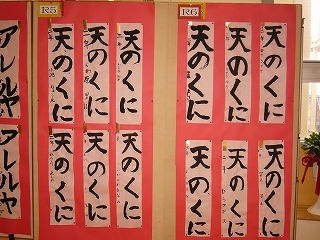 R5
R6
アレルヤ
天のくに
天のくに
天のくに
天のくに
天のくに
天のくに
アレルヤ
天のくに
天のくに
天のくに
天のくに
天のくに
天のくに